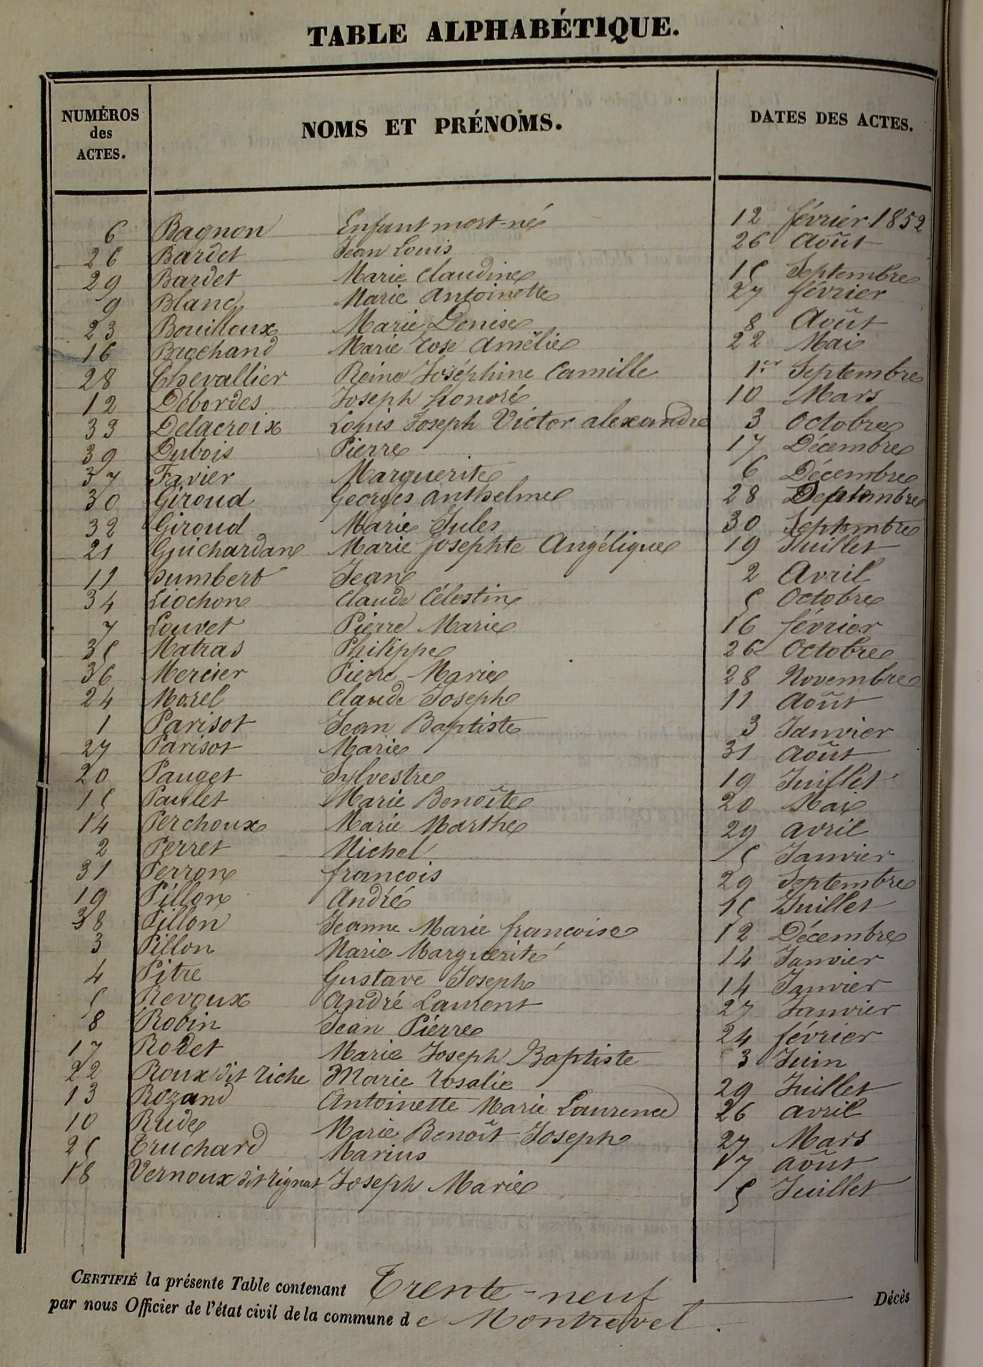 TABLE ALPHABÉTIQUE.
NUMÉROS des ACTES. NOMS ET PRÉNOMS. DATES DES ACTES.
6 Bagnon Enfant mort-né 12 février 1852
26 Bardet Jean Louis 26 Août
29 Bardet Marie Claudine 15 Septembre
9 Blanc Marie Antoinette 27 février
23 Bouilloux Marie Denise 8 Août
16 Brochand Marie Rose Amélie 22 Mai
28 Chevallier Reine Joséphine Camille 1er Septembre
12 Débordes Joseph honoré 10 Mars
33 Delacroix Louis Joseph Victor alexandre 3 Octobre
39 Dubois Pierre 17 Décembre
37 Favier Marguerite 6 Décembre
30 Giroud Georges anthelme 28 Septembre
32 Giroud Marie Jules 30 Septembre
21 Guichardan Marie Josephte Angélique 19 Juillet
11 humbert Jean 2 Avril
34 Liochon Claude Célestin 5 Octobre
7 Louvet Pierre Marie 16 février
35 Matras Philippe 26 Octobre
36 Mercier Pierre Marie 28 Novembre
24 Morel Claude Joseph 11 Août
1 Parisot Jean Baptiste 3 Janvier
27 Parisot Marie 31 Août
20 Pauget Sylvestre 19 Juillet
15 Paulet Marie Benoîte 20 Mai
14 Perchoux Marie Marthe 29 avril
2 Perret Michel 5 Janvier
31 Perron françois 29 Septembre
19 Pillon André 15 Juillet
38 Pillon Jeanne Marie francoise 12 Décembre
3 Pillon Marie Marguerite 14 Janvier
4 Pitre Gustave Joseph 14 Janvier
5 Revoux André Laurent 27 Janvier
8 Robin Jean Pierre 24 février
17 Rodet Marie Joseph Baptiste 3 Juin
22 Roux dit Riche Marie Rosalie 29 Juillet
13 Rozand Antoinette Marie Laurence 26 avril
10 Rude Marie Benoît Joseph 27 Mars
25 Truchard Marius 17 août
18 Vernoux dit Joseph Marie 5 Juillet
CERTIFIÉ la présente Table contenant Trente-neuf Décès
par nous Officier de l'état civil de la commune de Montrevel.